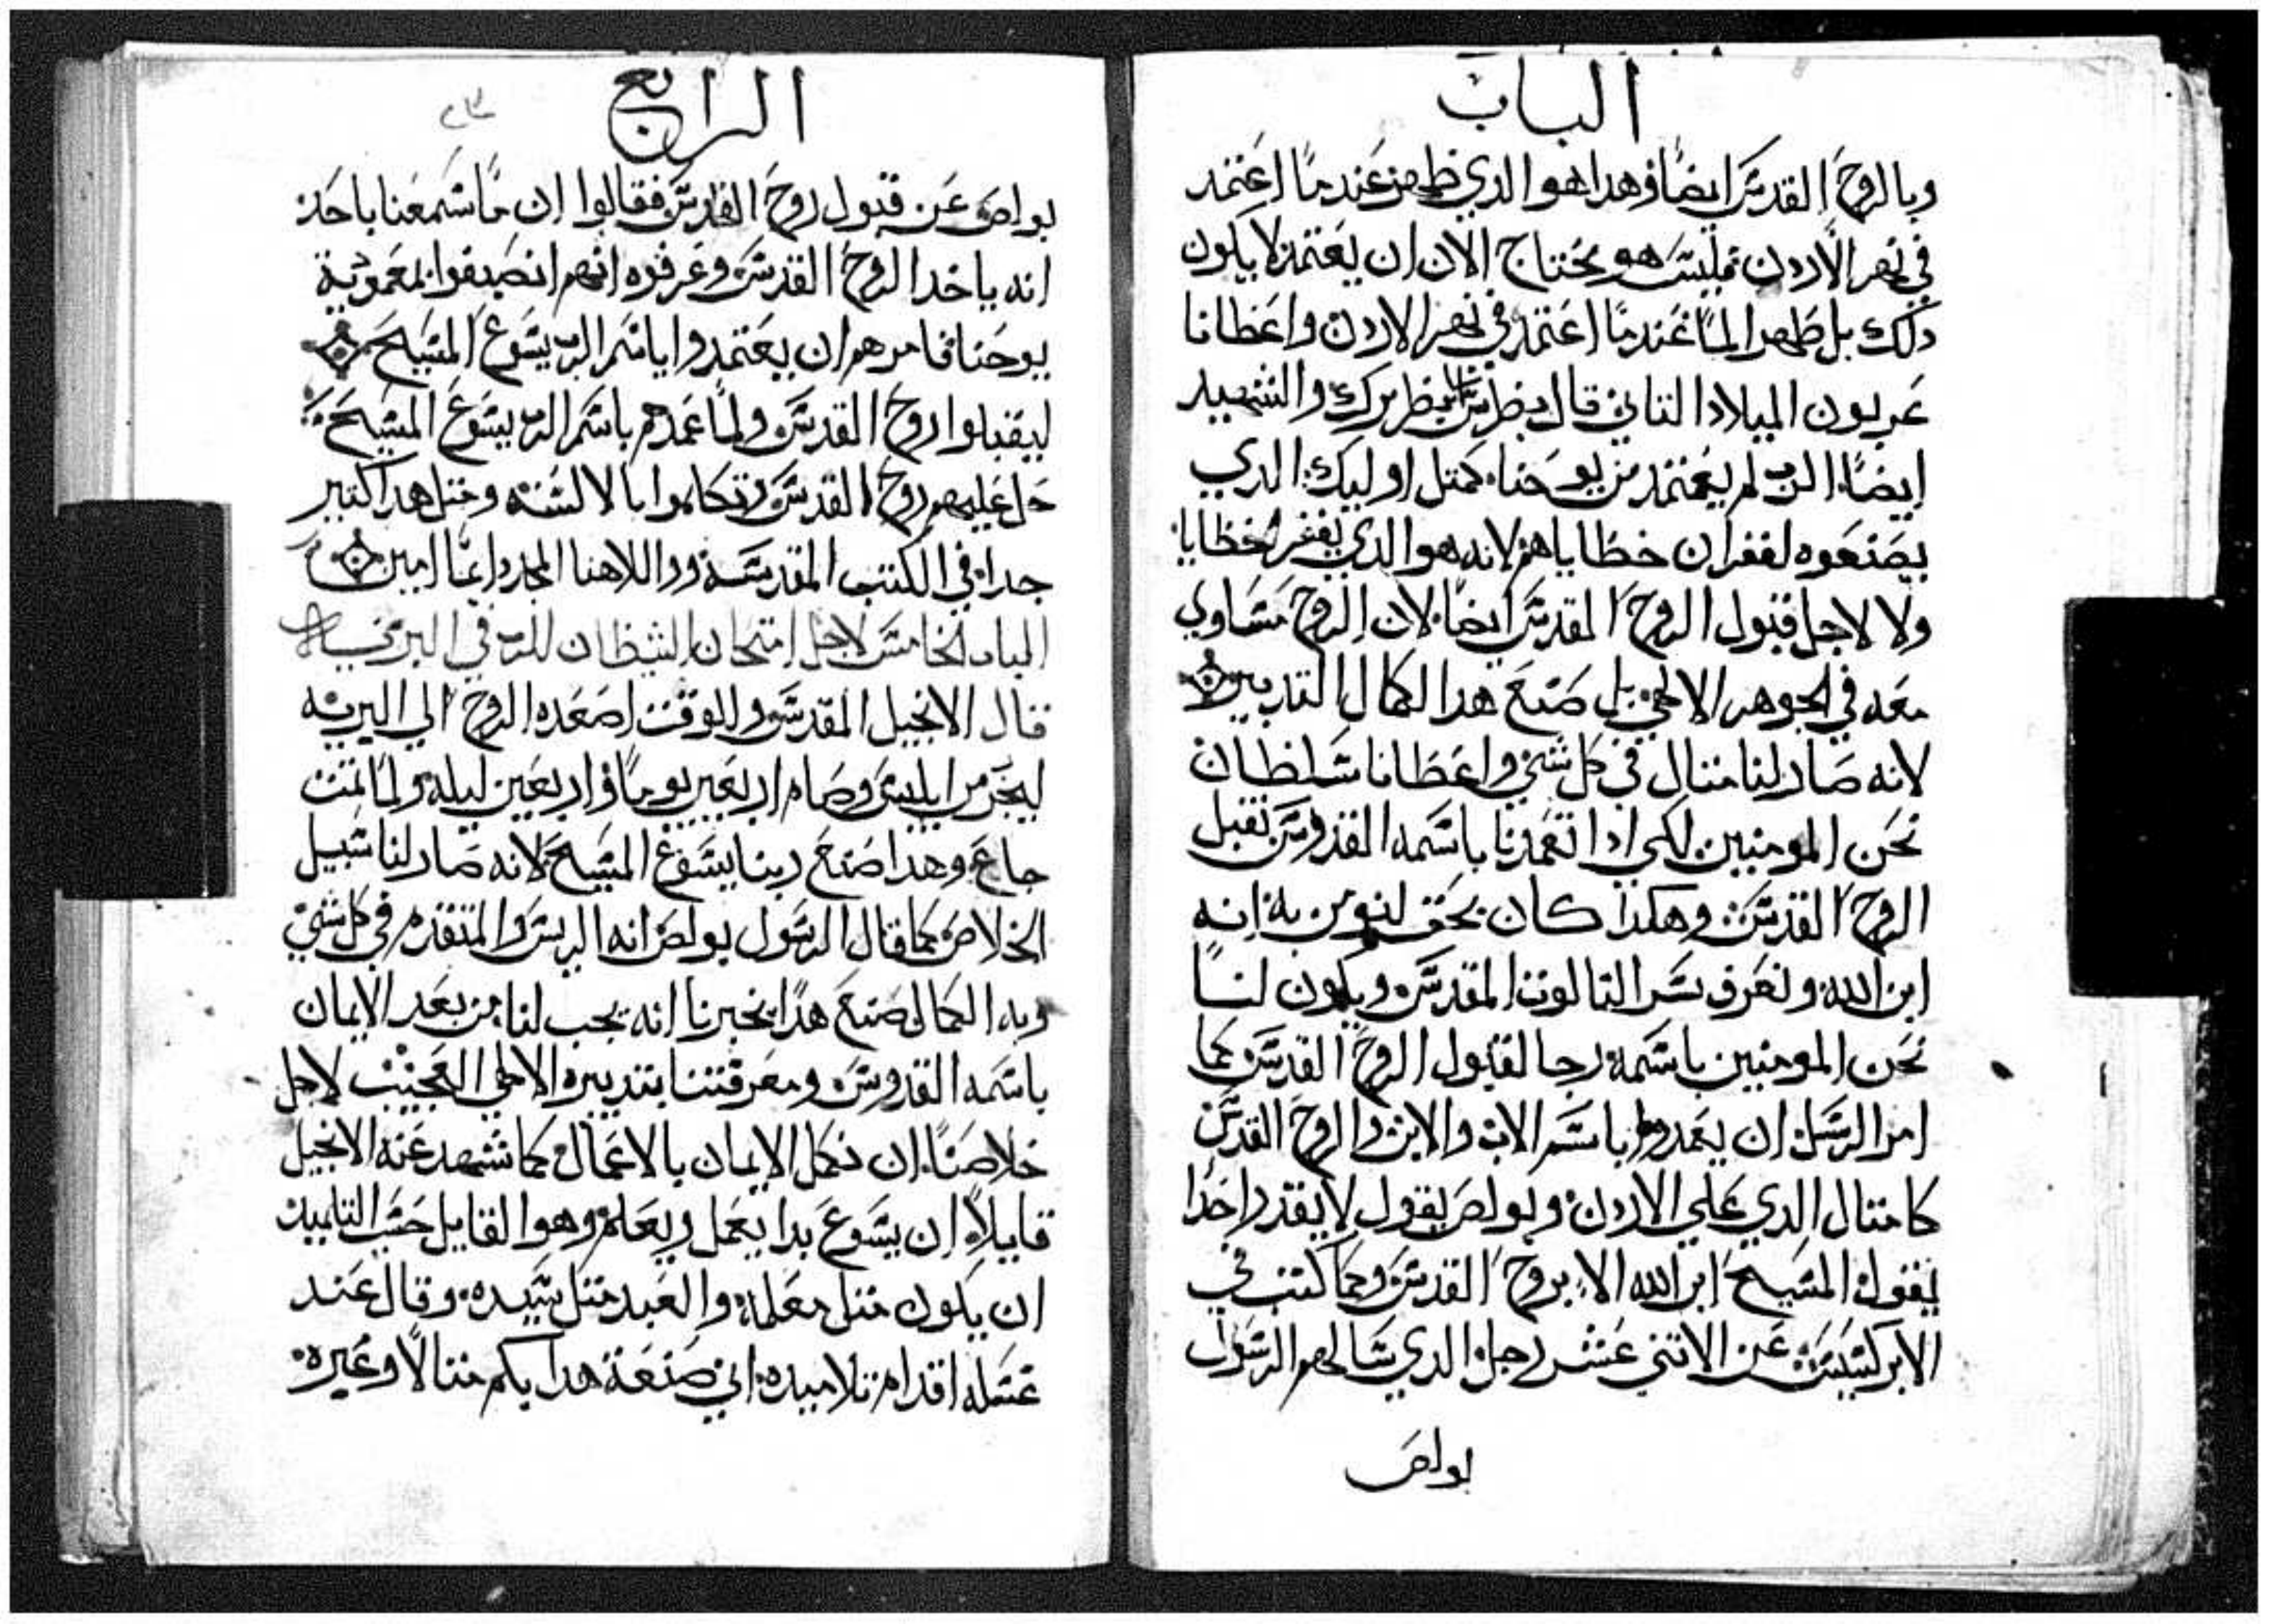 الباب
وبالروح القدس ايضا وهدا هو الدي ظهر عندما اعتمد
في نهر الاردن فليس هو يحتاج الان ان يعتمد لا يكون
دلك بل طهر الما عندما اعتمد في نهر الاردن واعطانا
عربون الميلاد التاني قال بطرس بطرك والشهيد
ايضا الرب لم يعتمد من يوحنا كمتل اوليك الدي
يصنعوه لغفران خطاياهم لانه هو الدي يغفر الخطايا
ولا لاجل قبول الروح القدس ايضا لان الروح مساوي
معه في الجوهر الالاهي بل صنع هدا الكمال التدبير
لانه صار لنا متال في كل شي واعطانا سلطان
نحن المومنين لكي ادا تعمدنا باسمه القدوس نقبل
الروح القدس وهكدا كان يحق لنومن به انه
ابن الله ونعرف سر التالوت المقدس ويكون لنا
نحن المومنين باسمه رجا لقبول الروح القدس كما
امر الرسل ان يعمدوا باسم الاب والابن والروح القدس
كامتال الدي علي الاردن وبولص يقول لا يقدر احدا
يقول المسيح ابن الله الا بروح القدس وكما كتب في
الابركسيس عن الاتني عشر رجل الدي سالهم الرسول
بولص
الرابع
بولص عن قبول روح القدس فقالوا ان ما سمعنا باحد
انه ياخد الروح القدس وعرفوه انهم انصبغوا بمعمودية
يوحنا فامرهم ان يعتمدوا باسم الرب يسوع المسيح
ليقبلوا روح القدس ولما عمدهم باسم الرب يسوع المسيح
حل عليهم روح القدس وتكلموا بالالسنه ومتل هدا كتير
جدا في الكتب المقدسة والاهنا المجد دايما امين
الباب الخامس لاجل امتحان الشيطان للرب في البريه
قال الانجيل المقدس والوقت اصعده الروح الي البريه
ليجرب من ابليس وصام اربعين يوما واربعين ليله ولما تمت
جاع وهدا صنع ربنا يسوع المسيح لانه صار لنا سبيل
الخلاص كما قال الرسول بولص انه الريس والمتقدم في كل شي
وبه الكمال صنع هدا يخبرنا انه يجب لنا من بعد الايمان
باسمه القدوس ومعرفتنا بتدبيره الالاهي العجيب لاجل
خلاصنا ان نكمل الايمان بالاعمال كما شهد عنه الانجيل
قايلا ان يسوع بدا يعمل ويعلم وهو القايل حسب التلميد
ان يكون متل معلمه والعبد متل سيده وقال عند
غسله اقدام تلاميده اني صنعة هدا بكم متالا وغيره